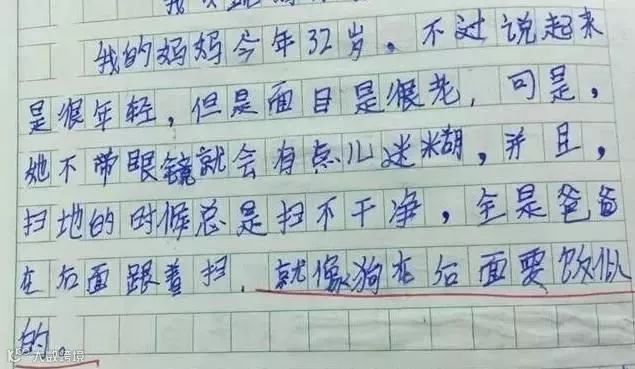 我的妈妈今年32岁。不过说起来
是很年轻，但是面目是很老，可是，
她不带眼镜就会有点儿迷糊，并且，
扫地的时候总是扫不干净，全是爸爸
在后面跟着扫．就像狗在后面要饭似
的。
大数跨境